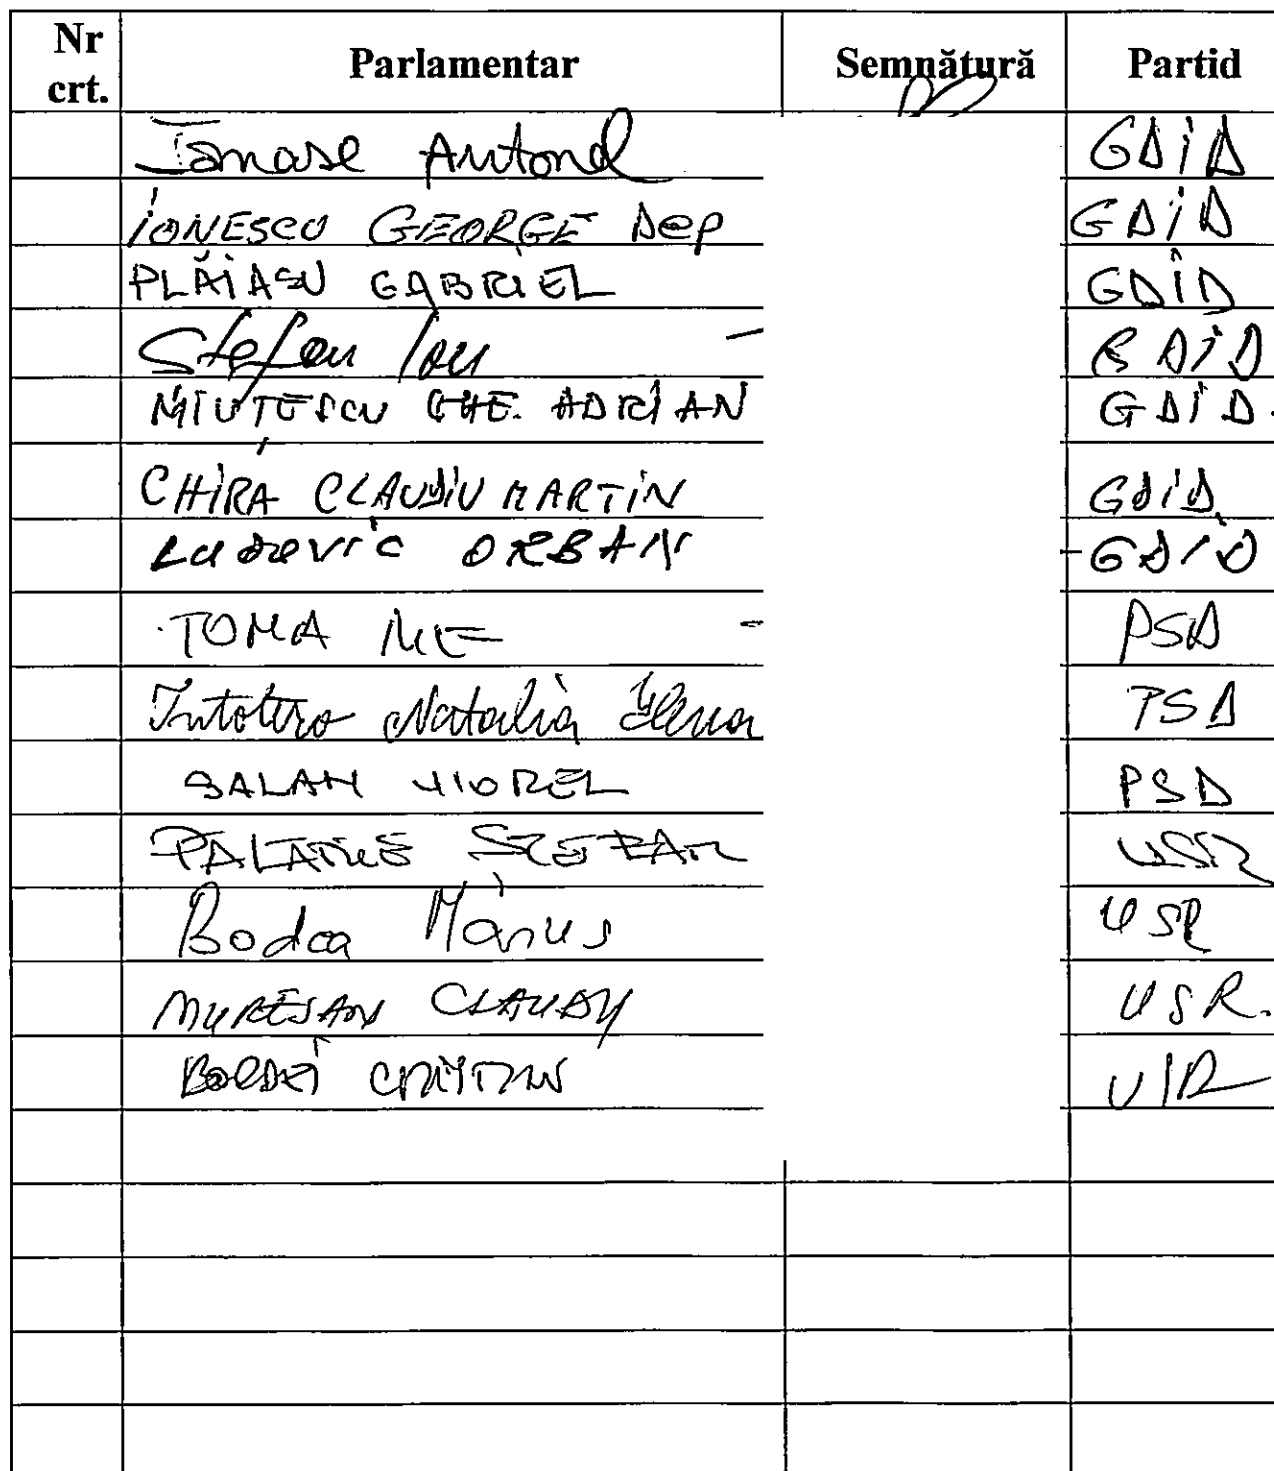 Nr crt. Parlamentar Semnătură Partid
Tanase Antonel GDÎD
IONESCU GEORGE Dep GDÎD
PLĂIAȘU GABRIEL GDÎD
Ștefan Ion GDÎD
MIUȚESCU GHE. ADRIAN GDÎD.
CHIRA CLAUDIU MARTIN GDÎD
Ludovic ORBAN GDÎD
TOMA ILIE PSD
Intotero Natalia Elena PSD
SALAN VIOREL PSD
PALARIE STEFAN USR
Bodea Marius USR
MURESAN CLAUDIU USR.
USR